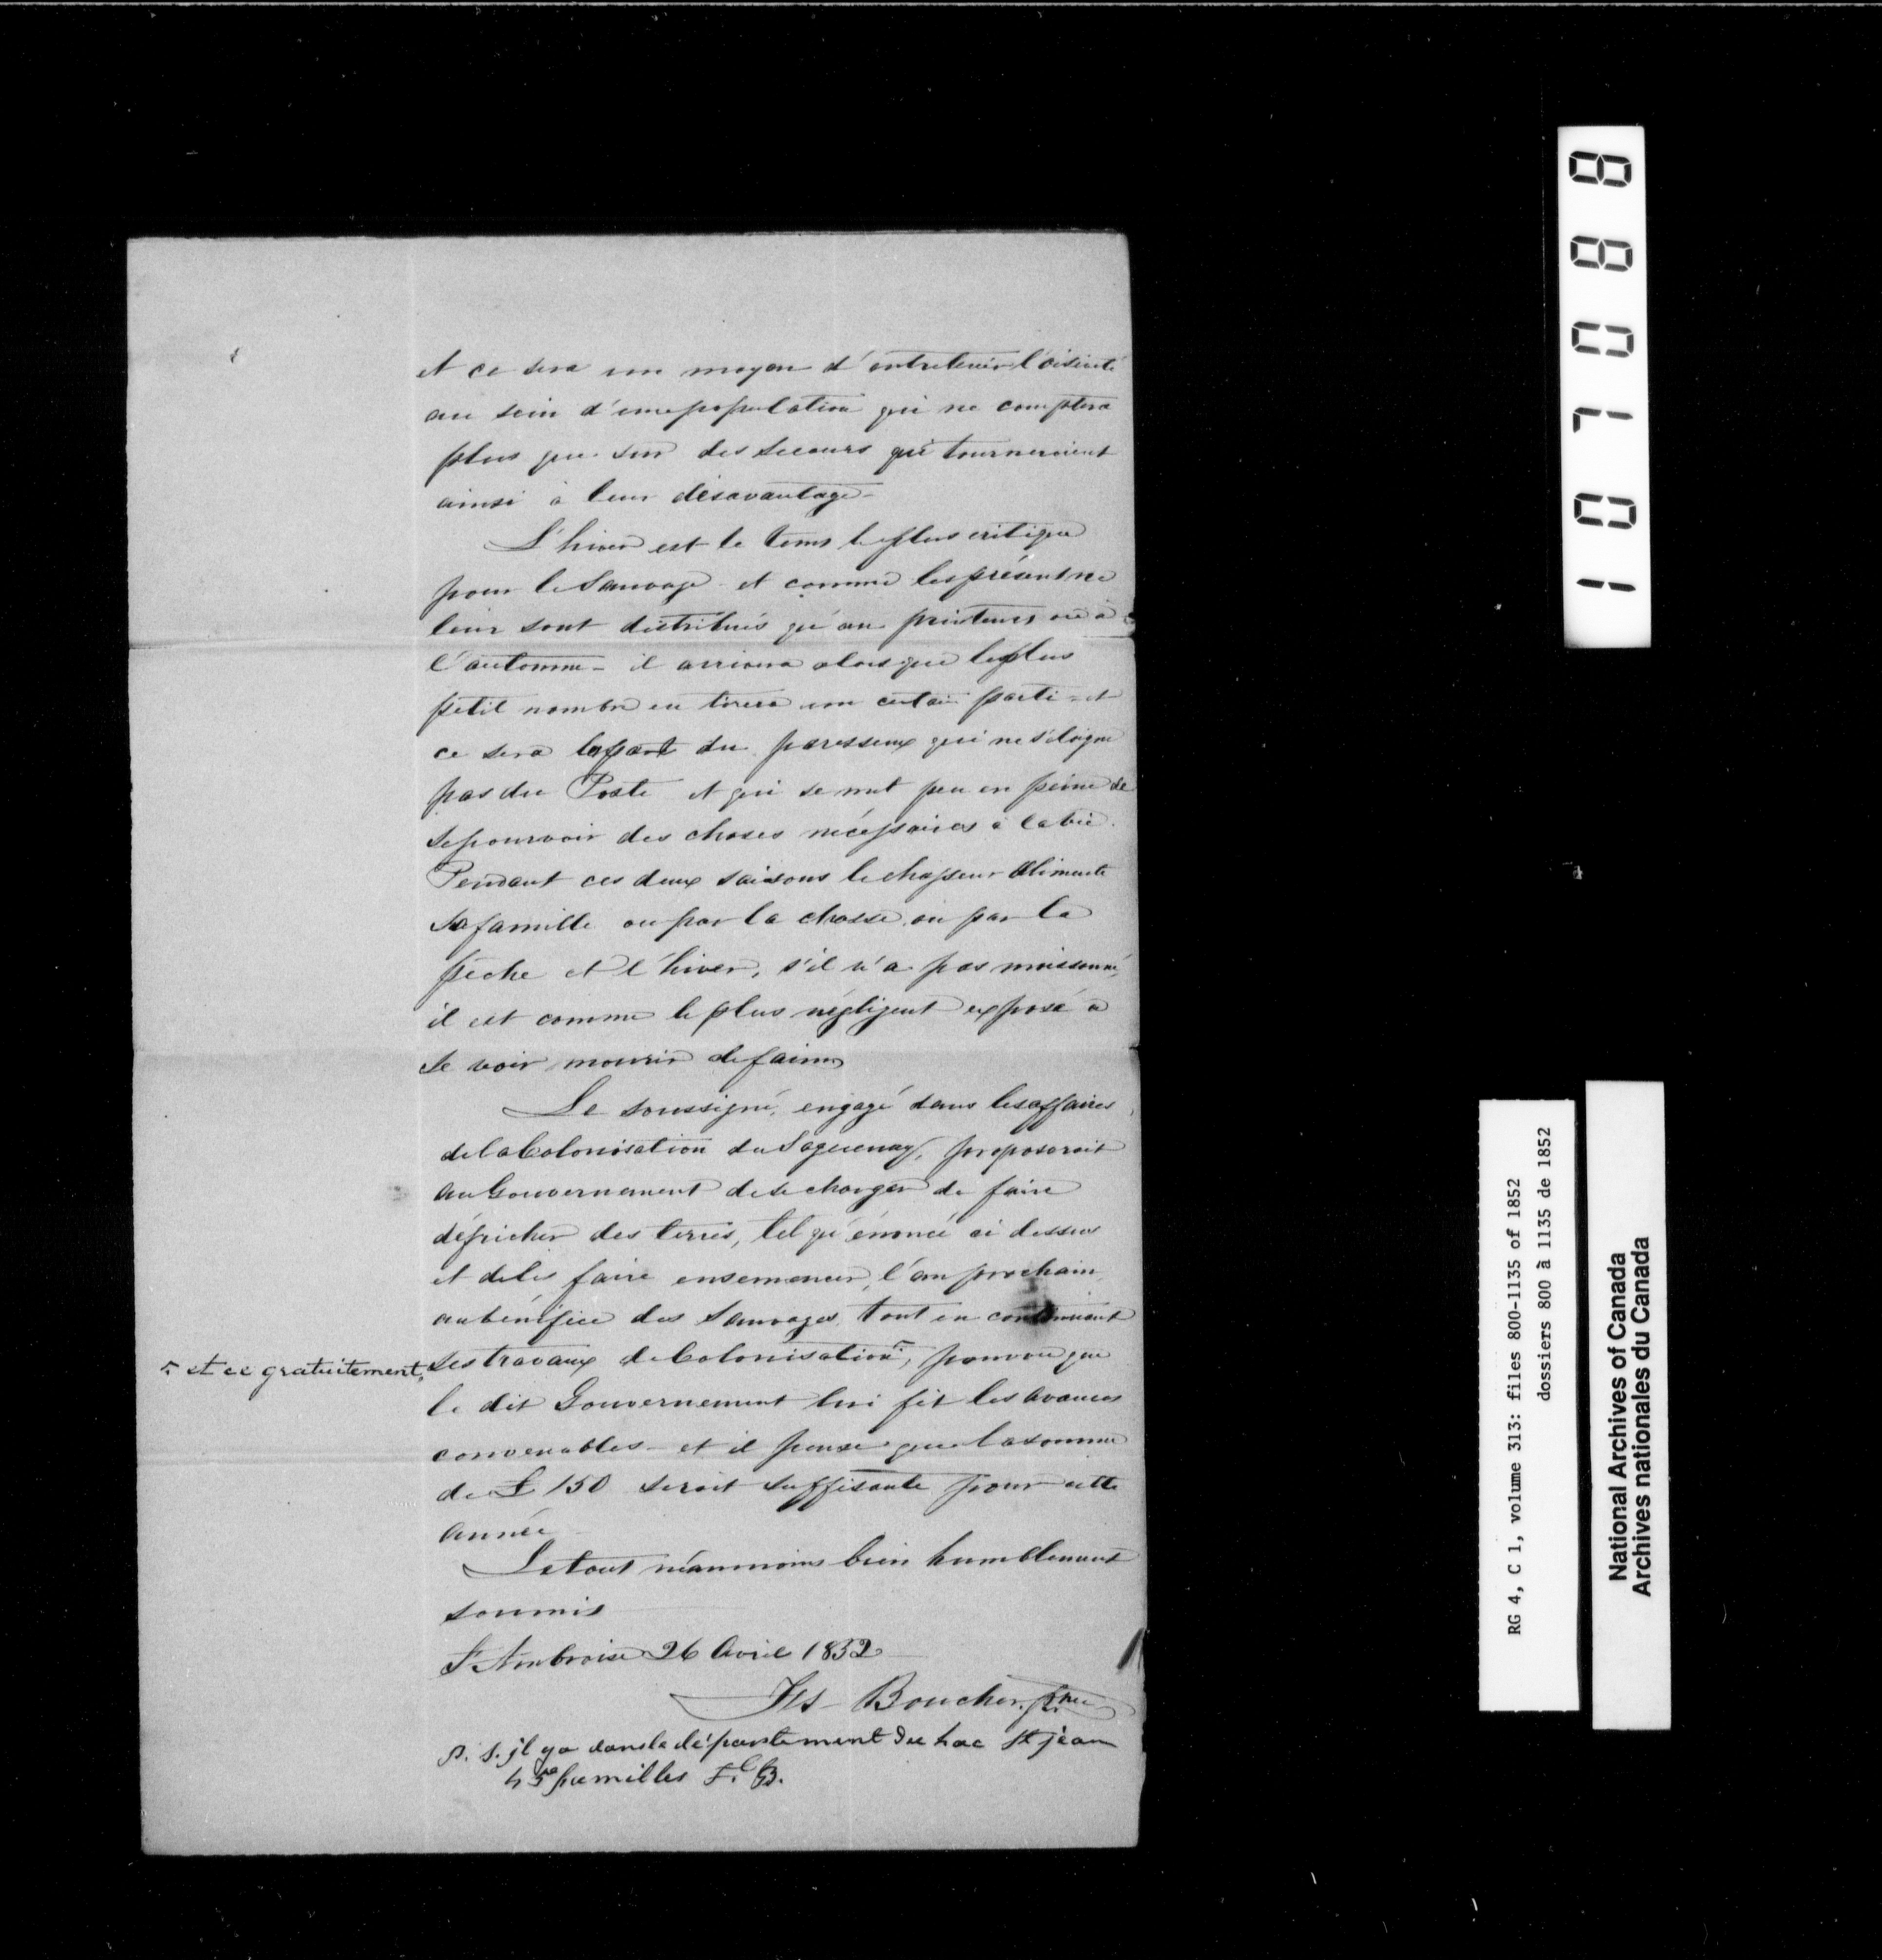 et ce sera un moyen d'entretenir l'oisiveté
au sein d'une population qui ne comptera
plus que sur des secours qui tourneraient
ainsi à leur désavantage -
L'hiver est le tems le plus critique
pour le Sauvage et comme les présents ne
leur sont distribués qu'au printems ou à
l'automne - il arrivera alors que le plus
petit nombre en tirera un certain parti - et
ce sera la part du paresseux qui ne s'éloigne
pas du Poste et qui se met peu en peine de
se pourvoir des choses nécessaires à la vie.
Pendant ces deux saisons le chasseur alimente
sa famille ou par la chasse ou par la
pêche et l'hiver, s'il n'a pas moissonné,
il est comme le plus négligent exposé à
se voir mourir de faim
Le soussigné, engagé dans les affaires
de la Colonisation du Saguenay, proposerait
au Gouvernement de se charger de faire
défricher des terres, tel qu'énoncé ci dessus
et de les faire ensemencer, l'an prochain,
au bénéfice des Sauvages, tout en continuant
ses travaux de Colonisation, pourvu que
et ce gratuitement,
le dit Gouvernement lui fit les avances
convenables - et il pense que la somme
de £ 150 serait suffisante pour cette
année
Le tout néanmoins bien humblement
soumis
St Ambroise 26 Avril 1852
Frs Boucher. Ptre
P. S. il y a dans le département du Lac St jean
45 familles F. B.
1 0 1 7 0 8 8
RG 4, C 1, volume 313: files 800-1135 of 1852
dossiers 800 à 1135 de 1852
National Archives of Canada
Archives nationales du Canada